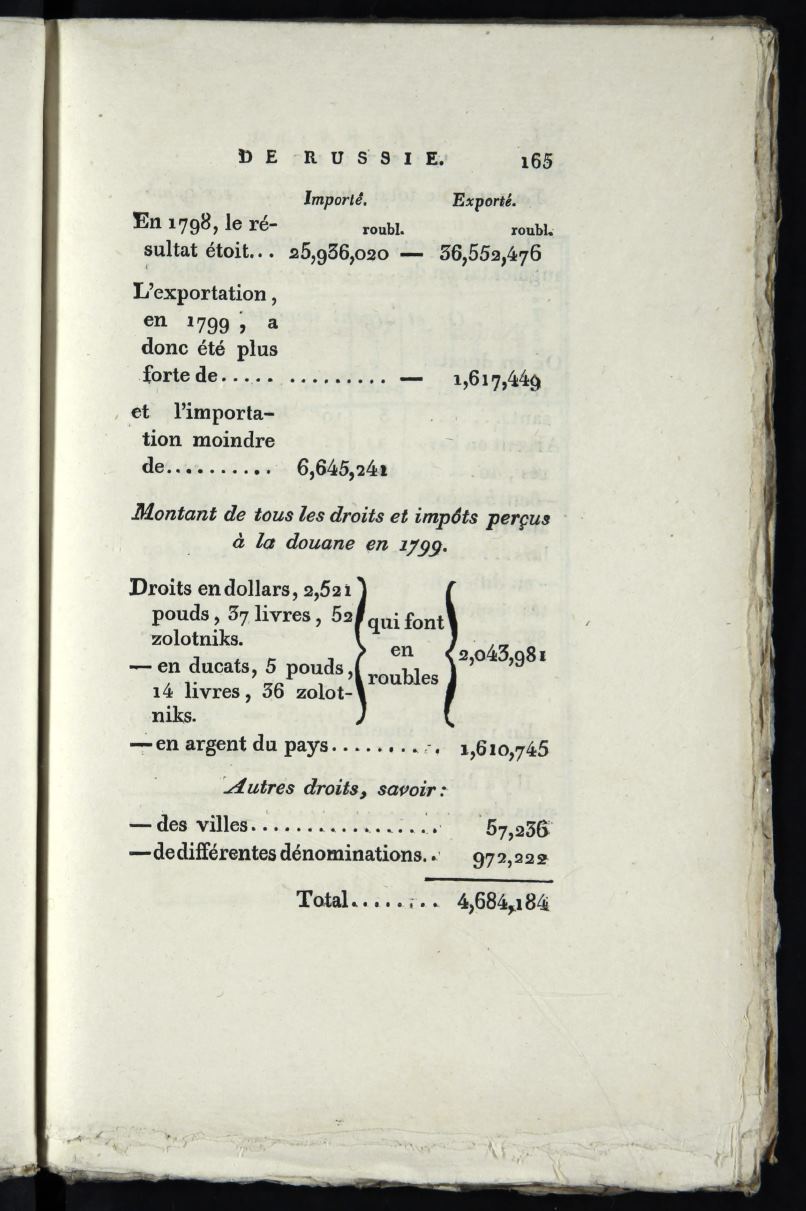 DE RUSSIE. 165
Importé. Exporté.
En 1798, le ré- roubl. roubl.
sultat étoit... 25,936,020 — 36,552,476
L'exportation,
en 1799, a
donc été plus
forte de..... ......... — 1,617,449
et l'importa-
tion moindre
de.......... 6,645,241
Montant de tous les droits et impôts perçus
à la douane en 1799.
Droits en dollars, 2,521
pouds, 37 livres, 52
zolotniks.
— en ducats, 5 pouds,
14 livres, 36 zolot-
niks.
qui font
en
roubles
2,043,981
— en argent du pays.......... 1,610,745
Autres droits, savoir:
— des villes................. 57,236
— de différentes dénominations.. 972,222
Total........ 4,684,184